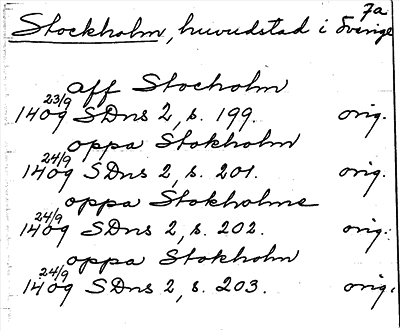 7a
Stockholm, huvudstad i Sverige
aff Stocholm
23/9
1409 SDns 2, s. 199. orig.
oppa Stokholm
24/9
1409 SDns 2, s. 201. orig.
oppa Stokholme
24/9
1409 SDns 2, s. 202. orig.
oppa Stokholm
24/9
1409 SDns 2, s. 203. orig.